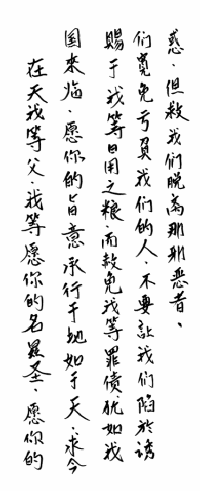 在天我等父．我等愿你的名显圣．愿你的
国来临．愿你的旨意承行于地如于天．求今
赐于我等日用之粮．而赦免我等罪债犹如我
们宽免亏负我们的人．不要让我们陷於诱
惑．但救我们脱离那邪恶者、